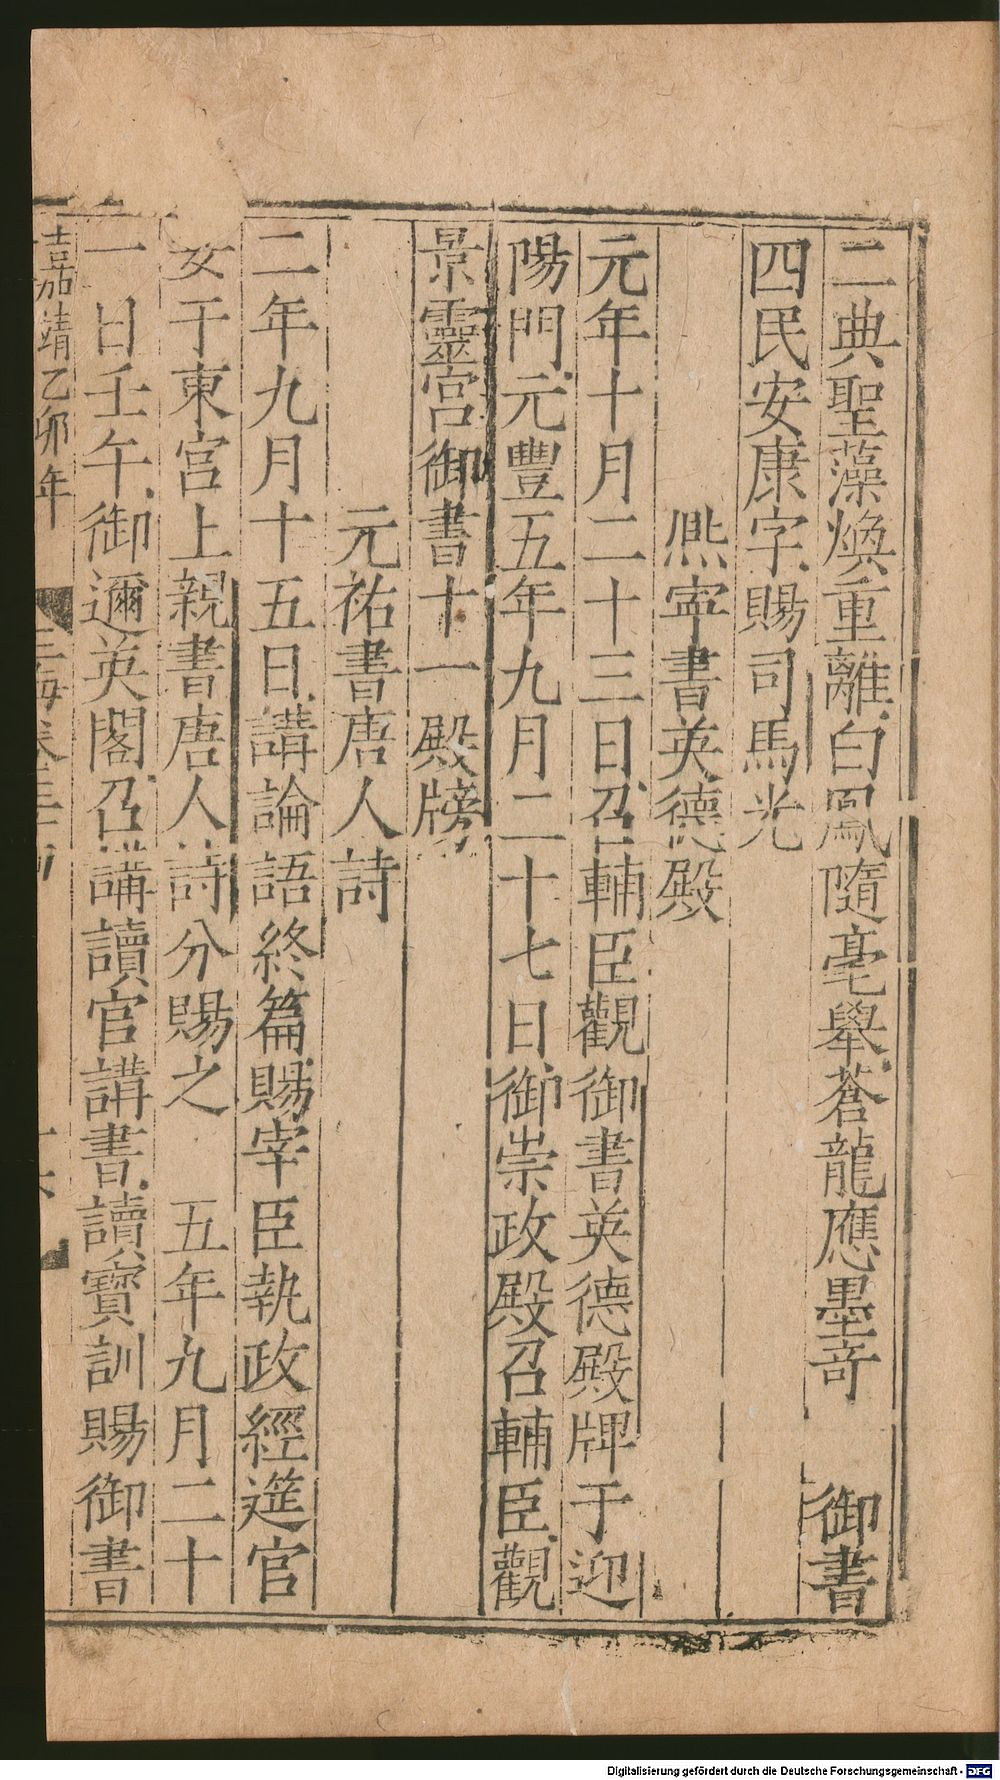 二典聖藻煥重離白鳳隨毫舉蒼龍應墨竒　御書
四民安康字賜司馬光
熈寧書英德殿
元年十月二十三日召輔臣觀御書英德殿牌于迎
陽門元豐五年九月二十七日御崇政殿召輔臣觀
景靈宮御書十一殿牓
元祐書唐人詩
二年九月十五日講論語終篇賜宰臣執政經筵官
于東宮上親書唐人詩分賜之　五年九月二十
一日壬午御邇英閣召講讀官講書讀寶訓賜御書
嘉靖乙卯年
Digitalisierung gefördert durch die Deutsche Forschungsgemeinschaft - DFG